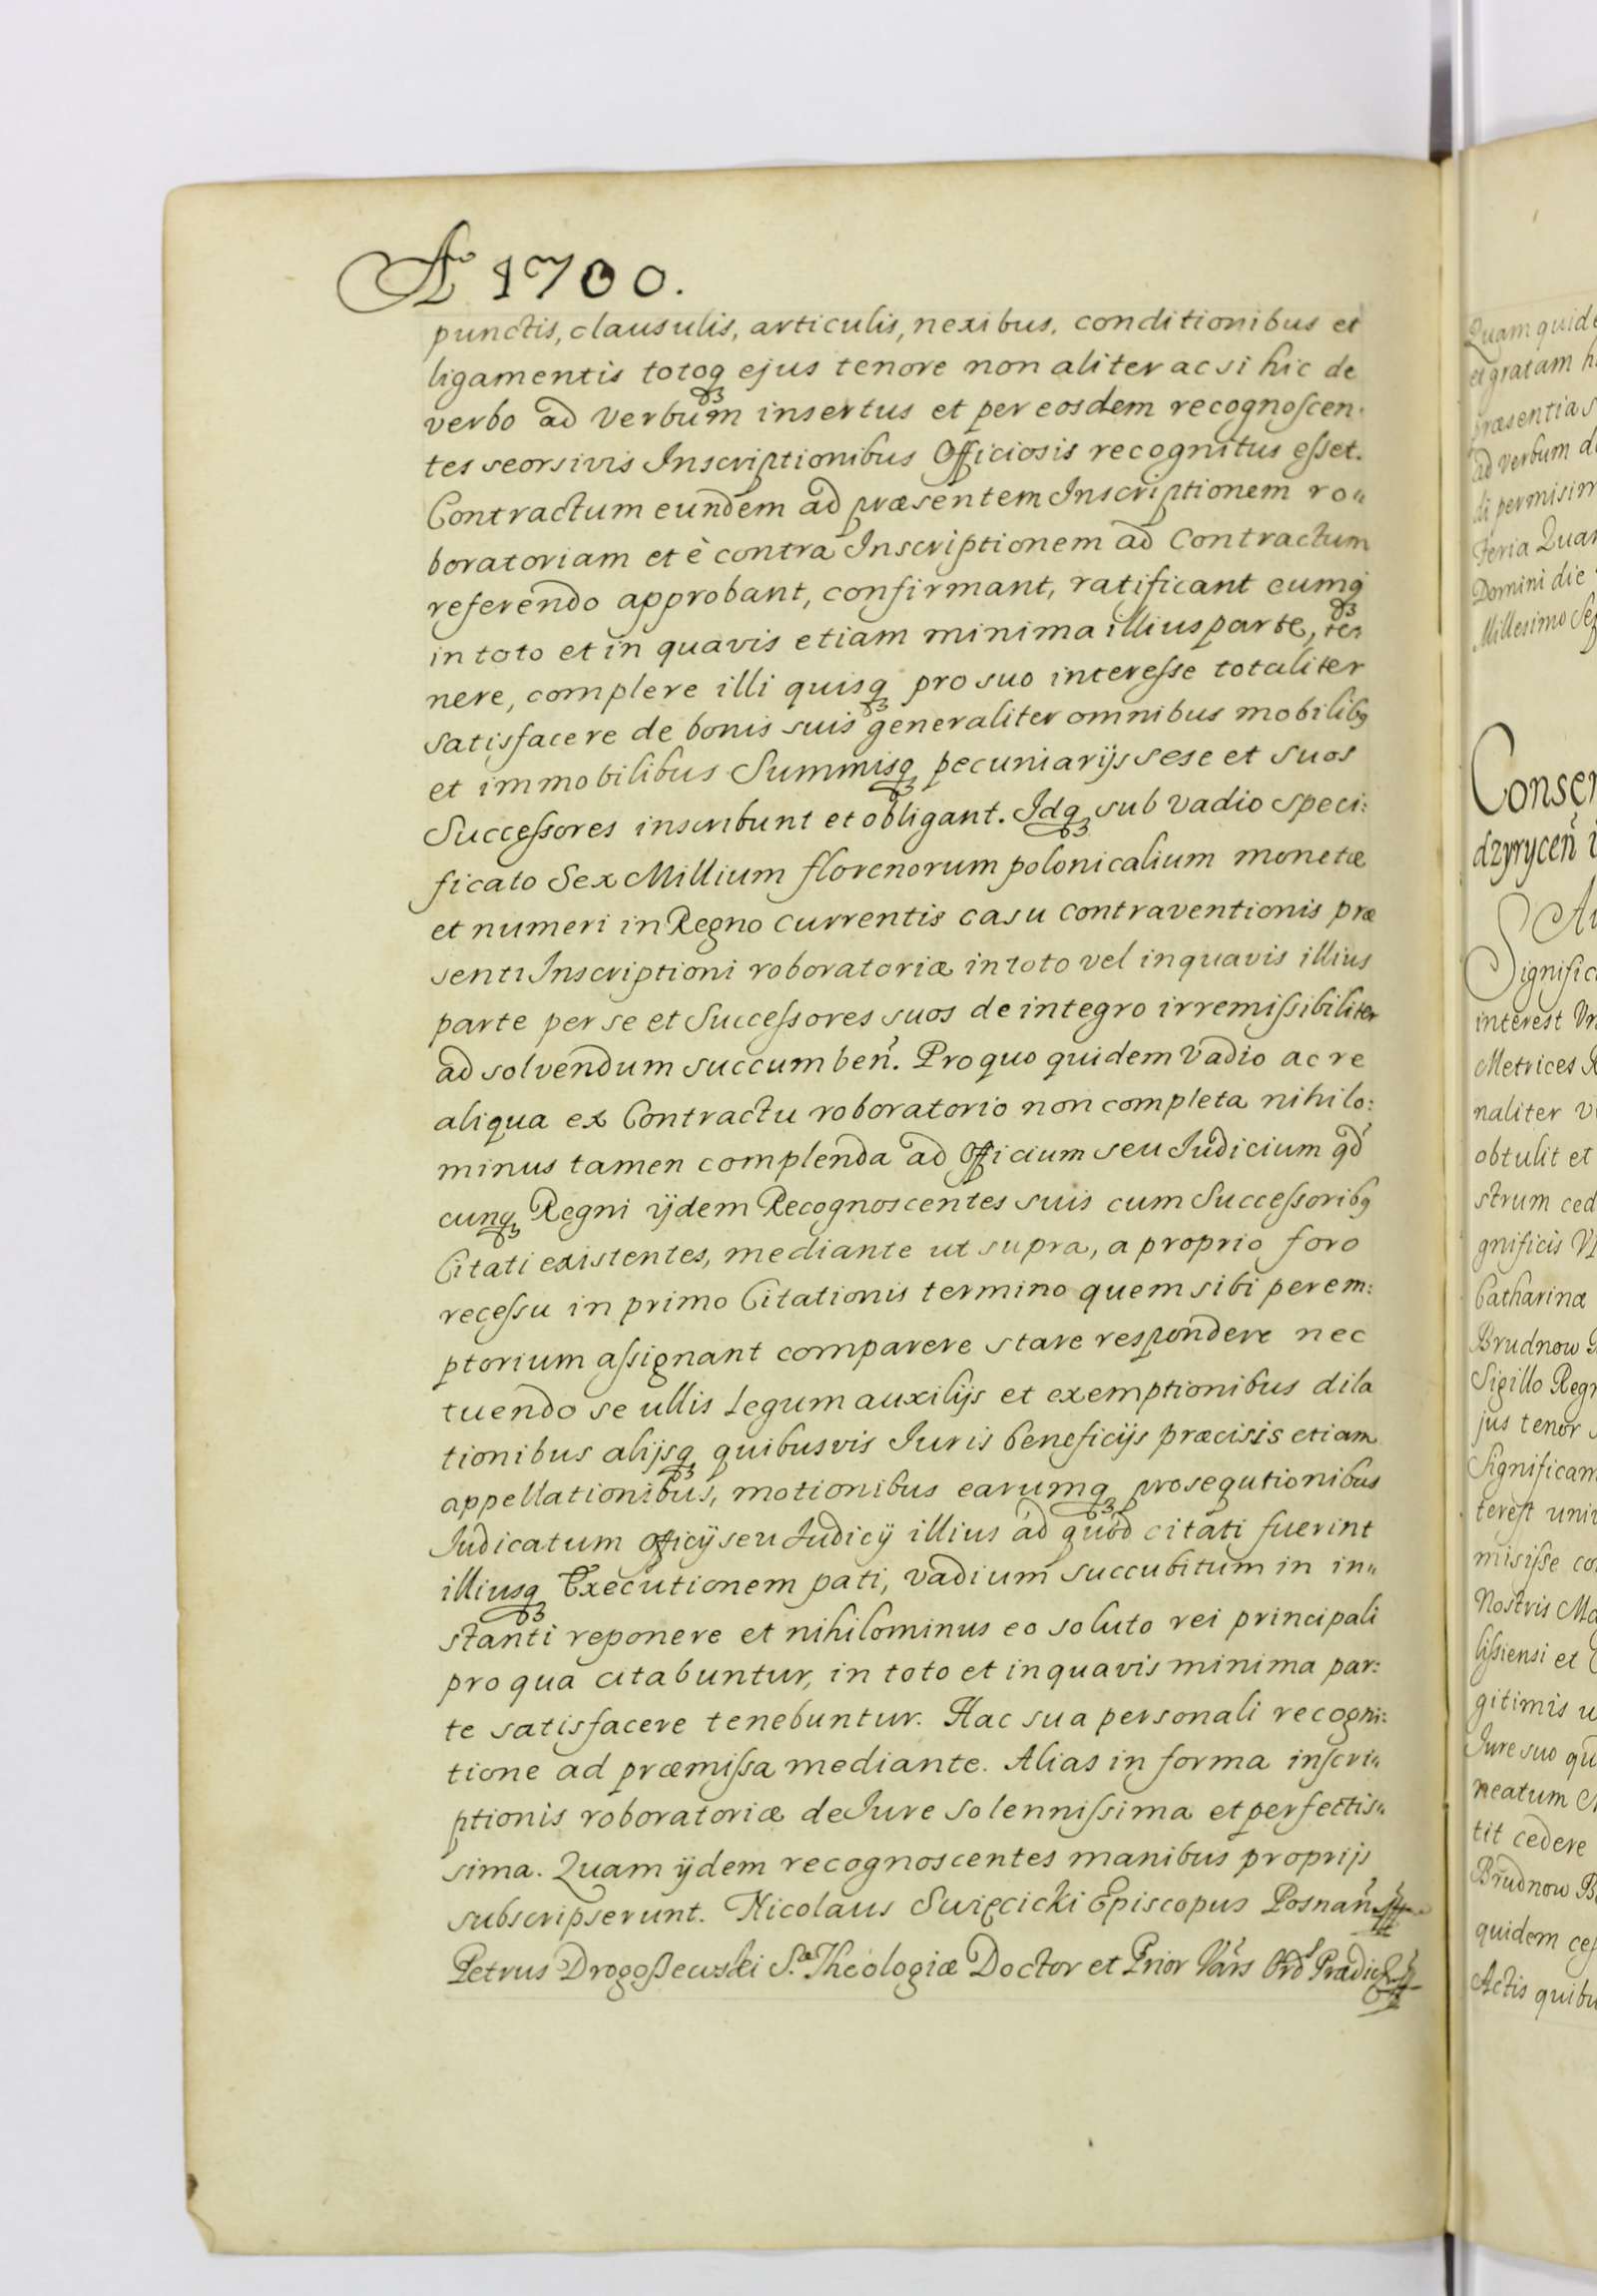 Aо 1700.
punctis, clausulis, articulis, nexibus, conditionibus et
ligamentis totoqꝫ ejus tenore non aliter ac si hic de
verbo ad verbum insertus et per eosdem recognoscen-
tes seorsivis Inscriptionibus Officiosis recognitus esset.
Contractum eundem ad præsentem Inscriptionem ro„
boratoriam et è contra Inscriptionem ad Contractum
referendo approbant, confirmant, ratificant eumqꝫ
in toto et in quavis etiam minima illius parte, te„
nere, complere illi quisqꝫ pro suo interesse totaliter
satisfacere de bonis suis generaliter omnibus mobilibꝫ
et immobilibus Summisqꝫ pecuniarijs sese et suos
Successores inscribunt et obligant. Idqꝫ sub vadio speci:
ficato Sex Millium florenorum polonicalium monetæ
et numeri in Regno currentis casu contraventionis præ
senti Inscriptioni roboratoriæ in toto vel in quavis illius
parte per se et Successores suos de integro irremissibiliter
ad solvendum succumben̄. Pro quo quidem vadio ac re
aliqua ex Contractu roboratorio non completa nihilo:
minus tamen complenda ad Officium seu Iudicium qd̄
cunqꝫ Regni ijdem Recognoscentes suis cum Successoribꝫ
Citati existentes, mediante ut supra, a proprio foro
recessu in primo Citationis termino quem sibi perem:
ptorium assignant comparere stare respondere nec
tuendo se ullis Legum auxilijs et exemptionibus dila
tionibus alijsqꝫ quibusvis Iuris beneficijs præcisis etiam
appellationibus, motionibus earumqꝫ prosequtionibus
Iudicatum officij seu Iudicij illius ad quod citati fuerint
illiusqꝫ Executionem pati, vadium succubitum in in„
stanti reponere et nihilominus eo soluto rei principali
pro qua citabuntur, in toto et in quavis minima par:
te satisfacere tenebuntur. Hac sua personali recogni:
tione ad præmissa mediante. Alias in forma inscri„
ptionis roboratoriæ de Iure solennissima et perfectis„
sima. Quam ijdem recognoscentes manibus proprijs
subscripserunt. Nicolaus Swięcicki Episcopus Posnan̄
Petrus Drogoszewski S.æ Theologiæ Doctor et Prior Vars Ord Prædic
Quam quide
et gratam h
præsentia s
ad verbum d
di permisim
Feria Quar
Domini die
Millesimo Sep
Consen
dzyrycen̄ i
Significa
interest Vn
Metrices R
naliter v
obtulit et
strum ced
gnificis
Catharinæ
Brudnow
Sigillo Regn
jus tenor s
Significam
terest univ
misisse co
Nostris Ma
lissiensi et
gitimis u
Iure suo qu
neatum
tit cedere
Brudnow B
quidem ces
Actis quibu